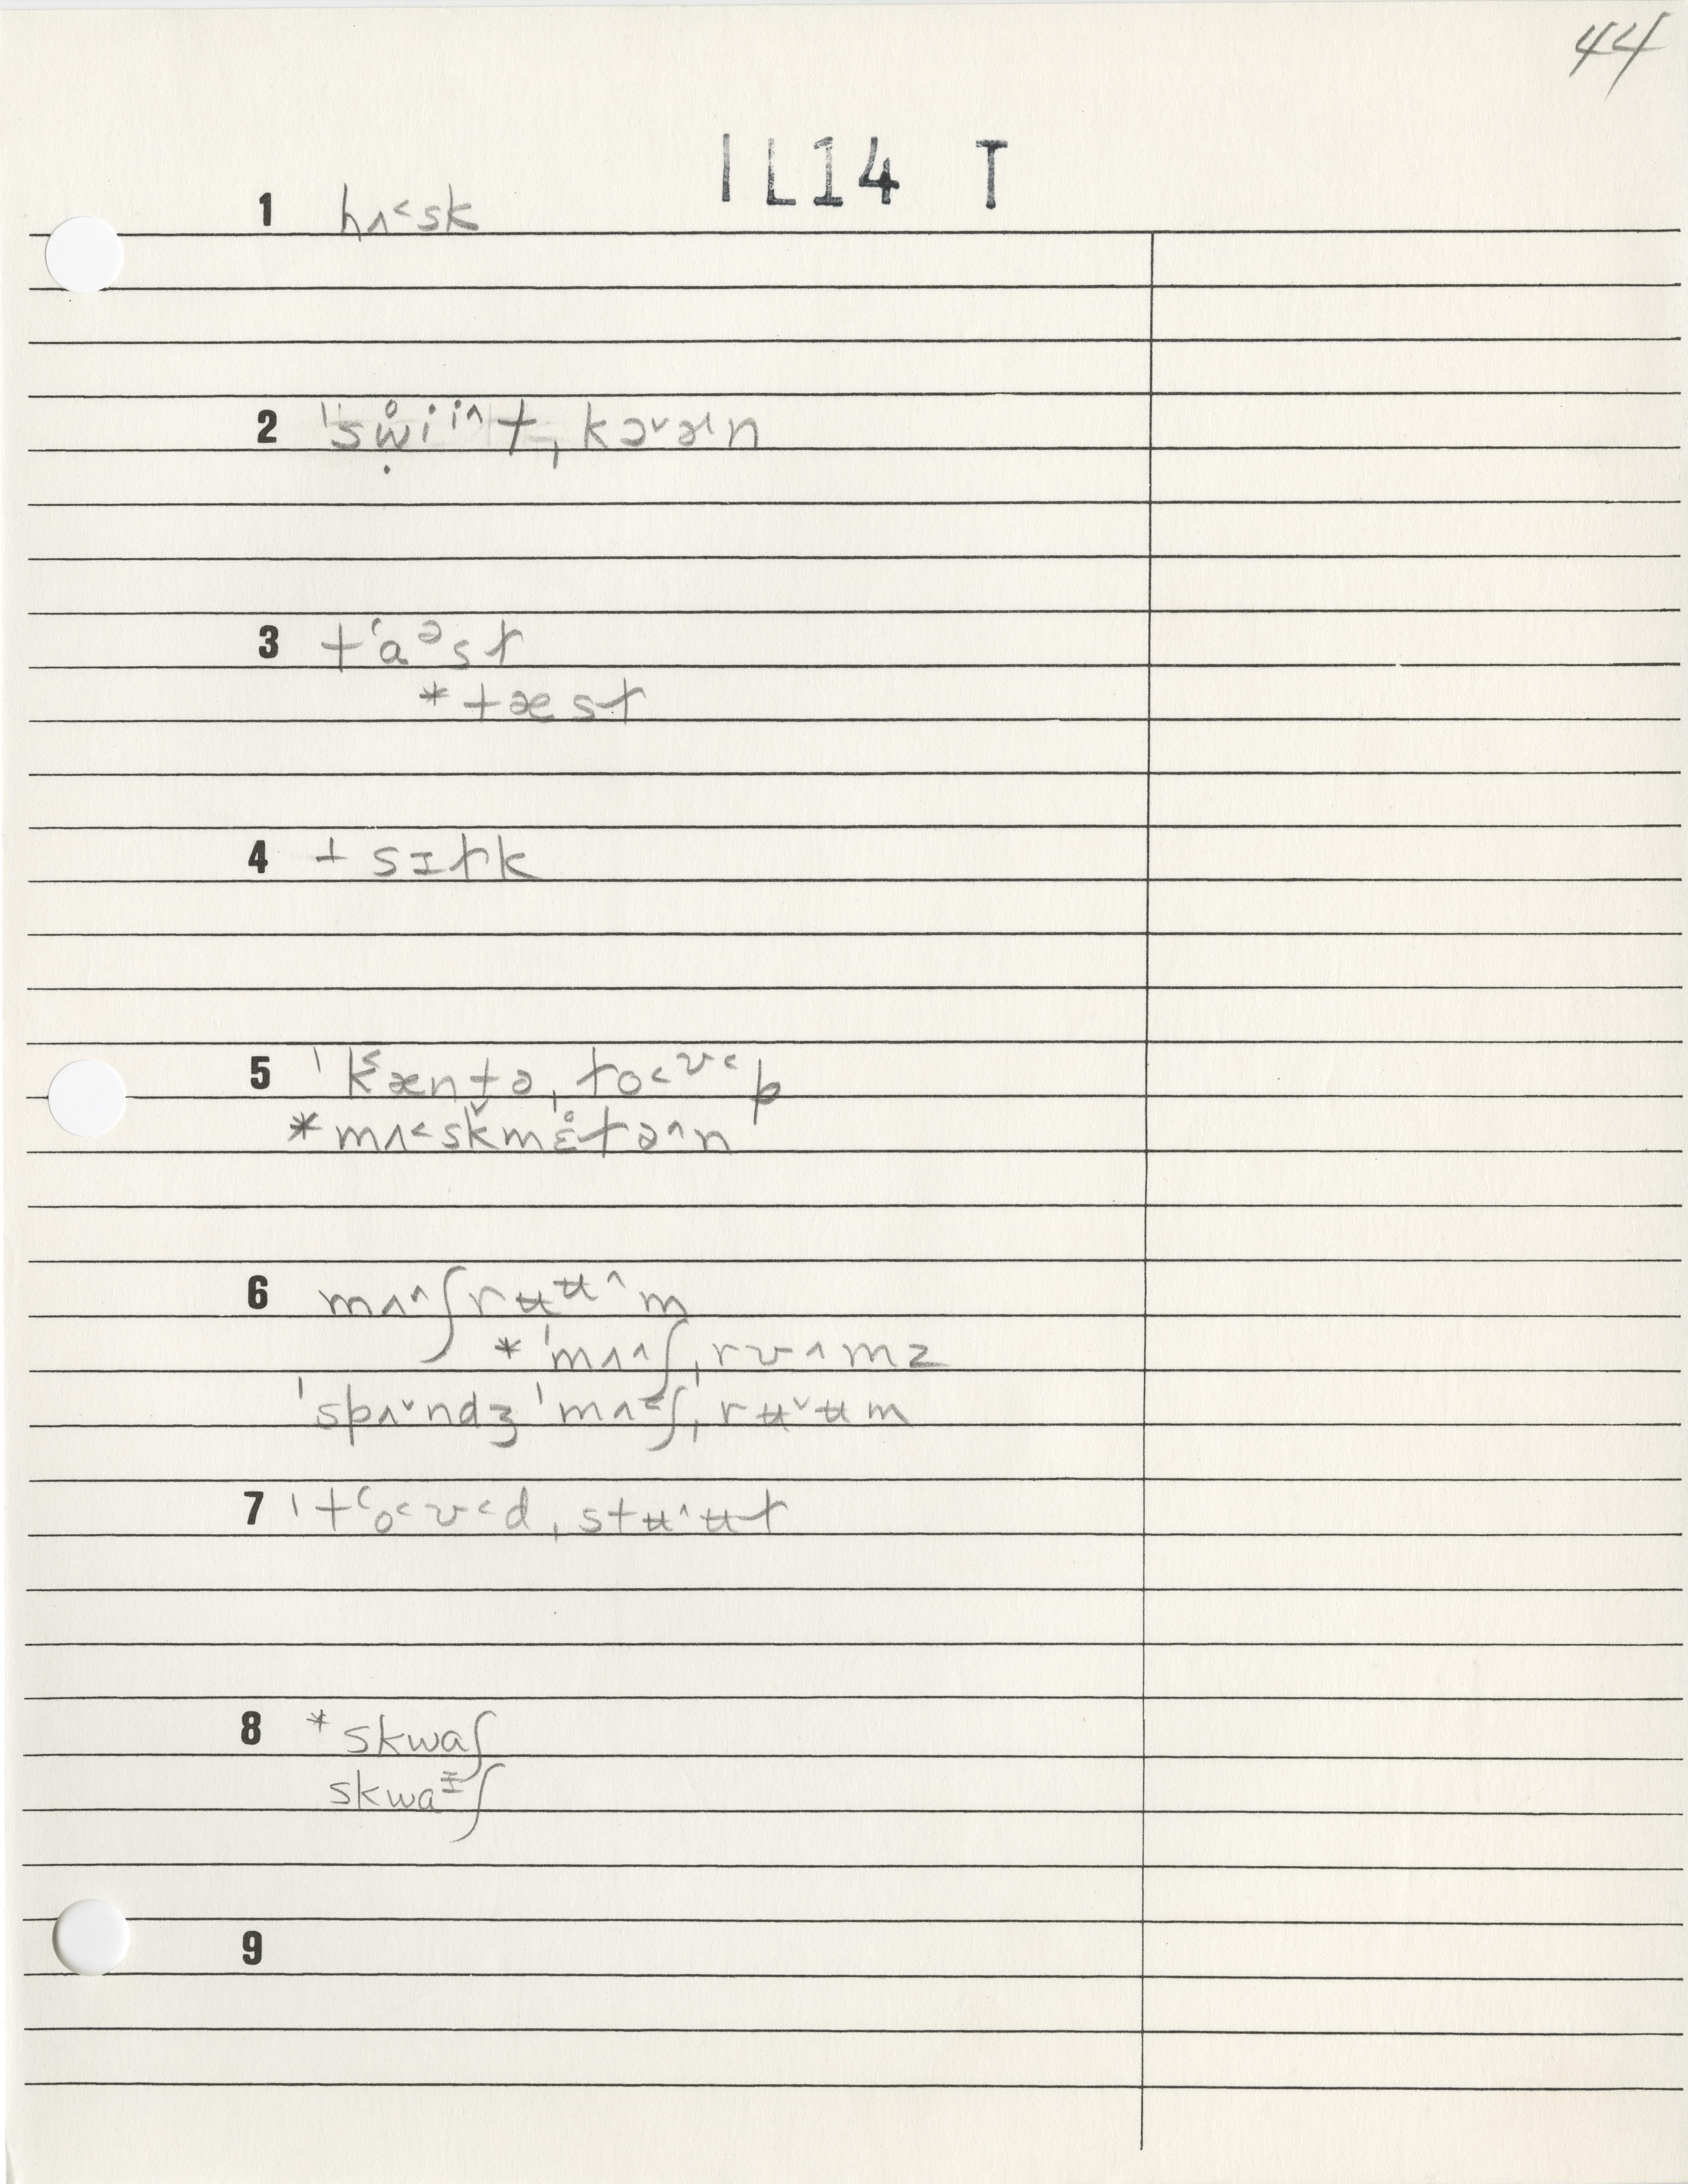 44
IL14 T
1 hʌ˂sk
2 ˈsẉ̊iiˆt̟ˌkəˇɚn
3 tʻaᵊsƭ
*tæsƭ
4 tsɪƭk
5 ˈk˂æntəˌƭo˂ʊ˂p
*mʌ˂sk̬mɛ̊ƭəˆn
6 mʌˆʃrʉʉˆm
*ˈmʌˆʃˌrʊˆmz
ˈspʌˇndʒˈmʌ˂ʃˌrʉˇʉm
7 ˈtʻo˂ʊ˂dˌstʉˆʉƭ
8 *skwaʃ
skwaᵻʃ
9